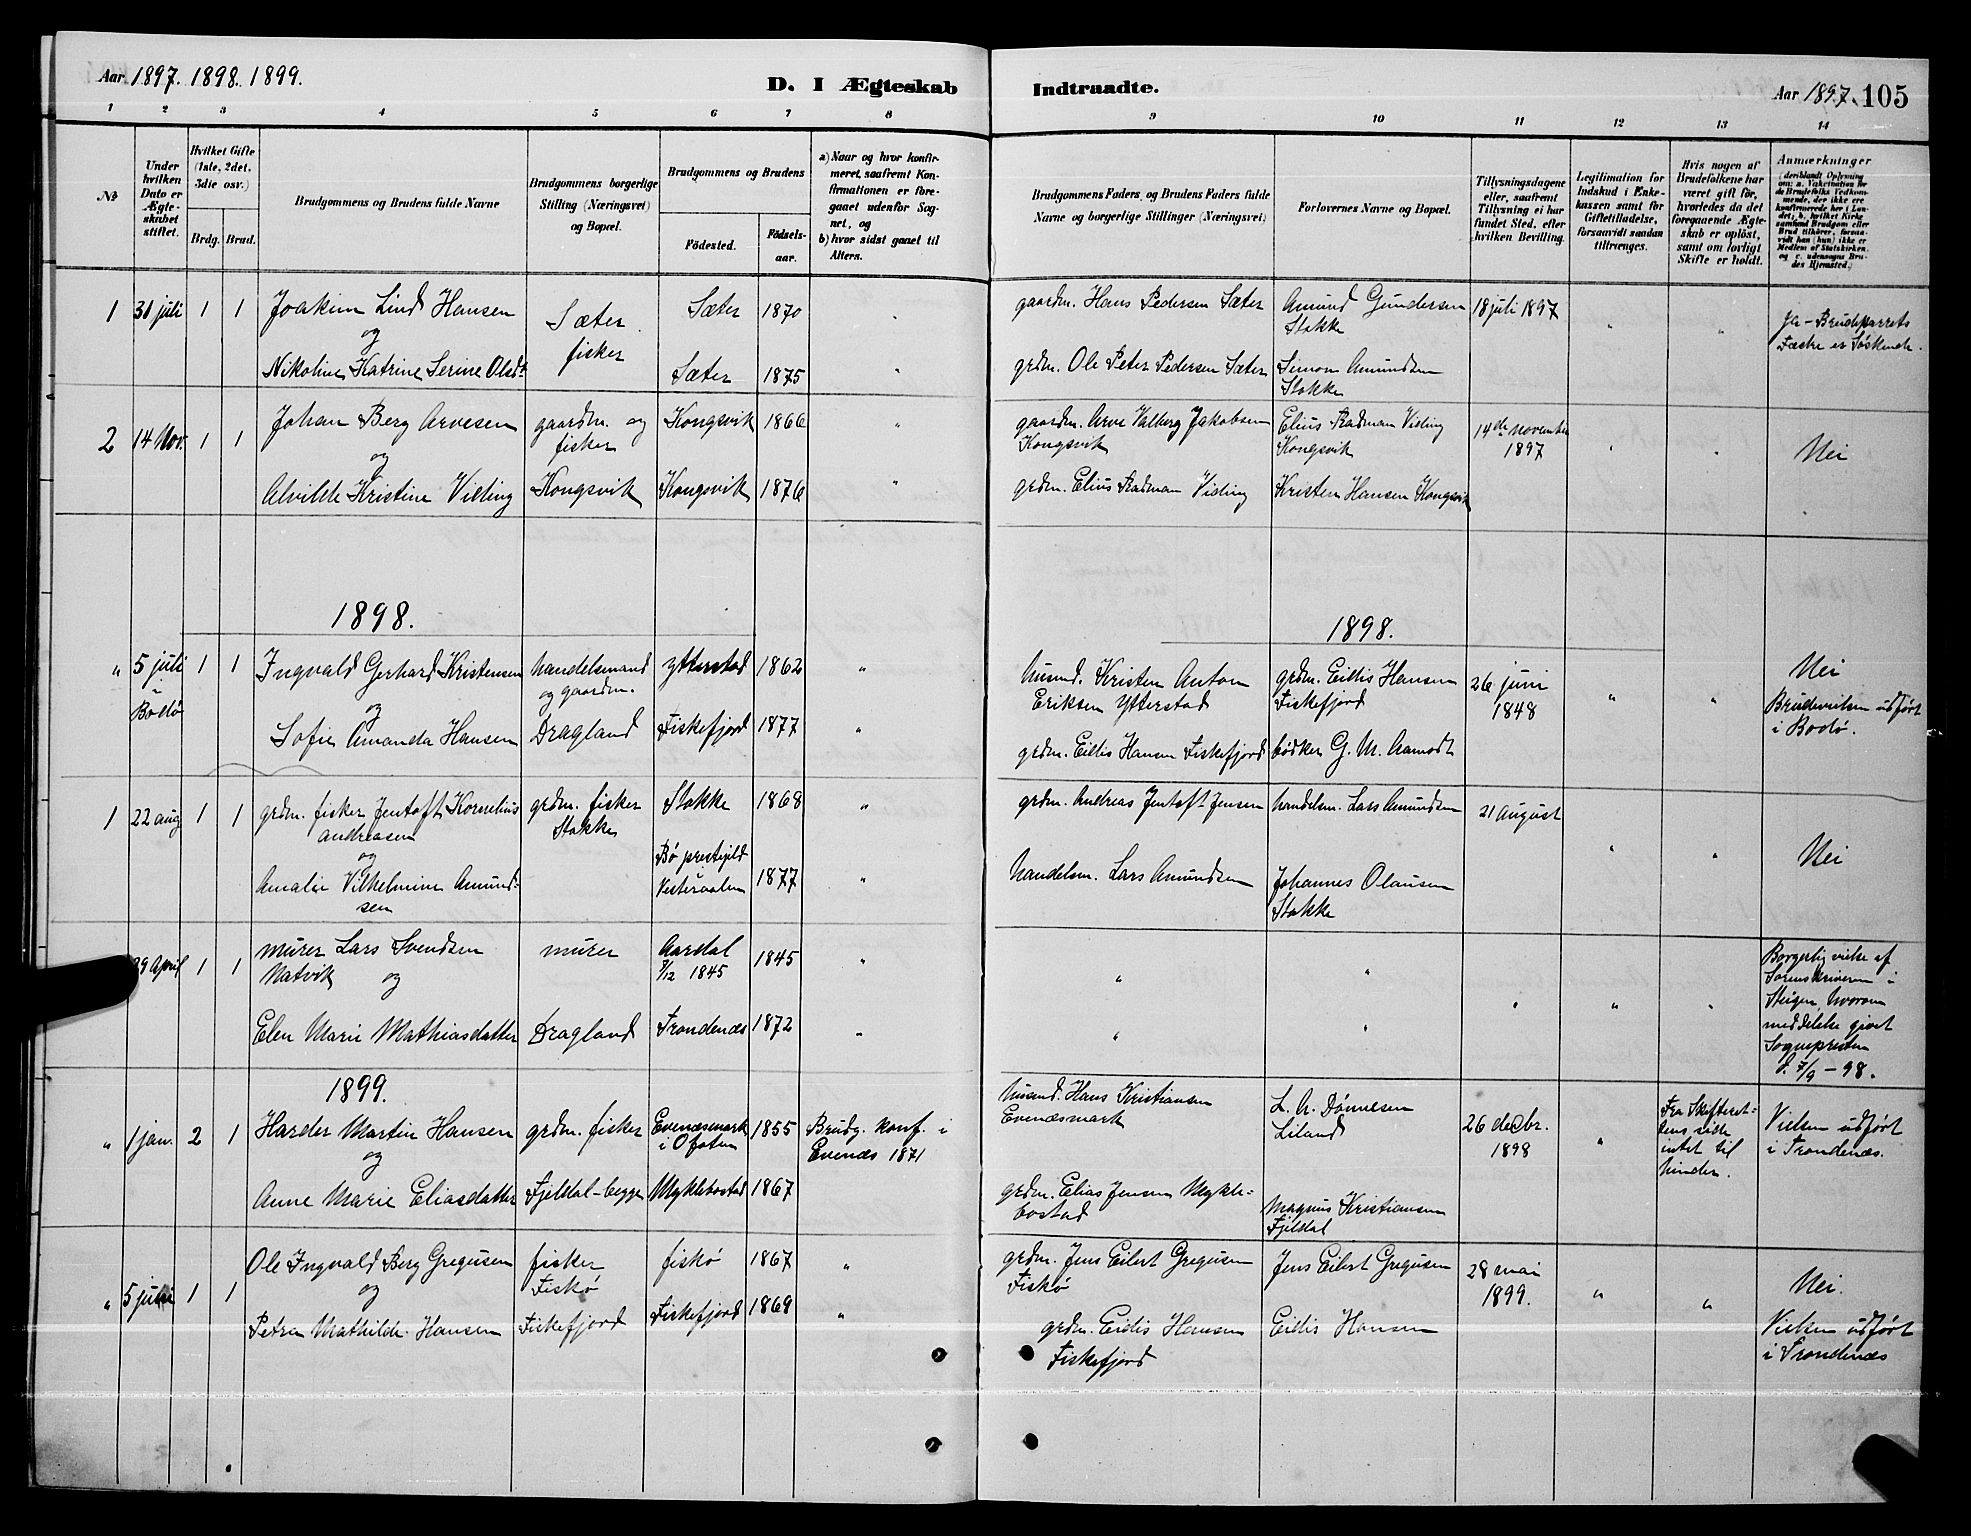 Aar 1897. 1898. 1899.
D. I Ægteskab
Indtraadte.
Aar 1897. 105
1 2 3 4 5 6 7 8
9 10 11 12 13 14
No
Under hvilken Dato er Ægteskabet stiftet.
Hvilket Gifte (1ste, 2det, 3die osv.)
Brdg. Brud.
Brudgommens og Brudens fulde Navne
Brudgommens borgerlige Stilling (Næringsvei) og Bopæl.
Brudgommens og Brudens
Födested.
Födsels-aar.
a) Naar og hvor konfirmeret, saafremt Konfirmationen er foregaaet udenfor Sognet, og
b) hvor sidst gaaet til Alters.
Brudgommens Faders og Brudens Faders fulde Navne og borgerlige Stillinger (Næringsvei)
Forlovernes Navne og Bopæl.
Tillysningsdagene eller, saafremt Tillysning ei har fundet Sted, efter hvilken Bevilling.
Legitimation for Indskud i Enkekassen samt for Giftetilladelse, forsaavidt saadan tiltrænges.
Hvis nogen af Brudefolkene har været gift för, hvorledes da det foregaaende Ægteskab er oplöst, samt om lovligt Skifte er holdt.
Anmærkninger
1 31 juli 1 1 Joakim Lind Hansen
og
Nikoline Katrine Serine Olsdt
Sæter
fisker
Sæter 1870 "
Sæter 1875 "
gaardm. Hans Pedersen Sæter
grdm. Ole Peter Pedersen Sæter
Amund Gundersen
Stokke
Simon Amundsen
Stokke
18 juli 1897 " "
Ja - Brudeparrets
Fædre er Søskende.
2 14 Nov. 1 1 Johan Berg Arvesen
og
Alvilde Kristine Viding
gaardm. og
fisker
Kongsvik
Kongsvik 1866 "
Kongsvik 1876 "
gaardm. Arve Valberg Jakobsen
Kongsvik
grdm. Elius Radman Viding
Elius Radman Viding
Kongsvik
Kristen Hansen Kongsvik
14de November
1897 " "
Nei
1898.
1898.
" 5 juli
i
Bodø
1 1 Ingvald Gerhard Kristensen
og
Sofie Amanda Hansen
handelsmand
og gaardm.
Dragland
Ytterstad 1862 "
Fiskefjord 1877 "
husmd. Kristen Anton
Eriksen Ytterstad
grdm. Eillis Hansen Fiskefjord
grdm. Eillis Hansen
Fiskefjord
bødker G. M. Aamodt
26 juni
1848 " "
Nei
Brudevielsen udført
i Bodø.
1 22 aug 1 1 grdm. fisker Jentoft Kornelius
Andreasen
og
Amalie Vilhelmine Amund-
sen
grdm. fisker
Stokke
Stokke 1868 "
Bø prestegjeld
Vesteraalen 1877 "
grdm. Andreas Jentoft Jensen
handelsm. Lars Amundsen
handelsm. Lars Amundsen
Johannes Olausen
Stokke
21 august
" "
Nei
29 April 1 1 murer Lars Svendsen
Natvik og
Elen Marie Mathiasdatter
murer
Dragland
Aardal
9/12 1845 1845 "
Trondenæs 1872 "
" " " " "
" "
Borgerlig vielse af
Sorenskriveren i
Steigen hvorom
meddelelse givet
Sognepresten
d. 7/9 - 98.
1899.
" 1 jan. 2 1 Harder Martin Hansen
og
Anne Marie Eliasdatter
grdm. fisker
Fjeldal - begge
Evenæsmark
i Ofoten 1855
Myklebostad 1867
Brudg. konf. i
Evenæs 1871
husmd. Hans Kristiansen
Evenæsmark
grdm. Elias Jensen Mykle-
bostad
L. A. Dønnesen
Liland
Magnus Kristiansen
Fjeldal
26 decbr.
1898 "
Fra Skifteret-
tens side
intet til
hinder.
Vielsen udført
i Trondenæs.
" 5 juni 1 1 Ole Ingvald Berg Gregusen
og
Petra Mathilde Hansen
fisker
Fiskø
Fiskefjord
fiskø 1867 "
Fiskefjord 1869 "
grdm. Jens Eilert Gregusen
Fiskø
grdm. Eidis Hansen
Fiskefjord
Jens Eilert Gregusen
Eillis Hansen
28 mai
1899. " "
Nei.
Vielsen udført
i Trondenæs